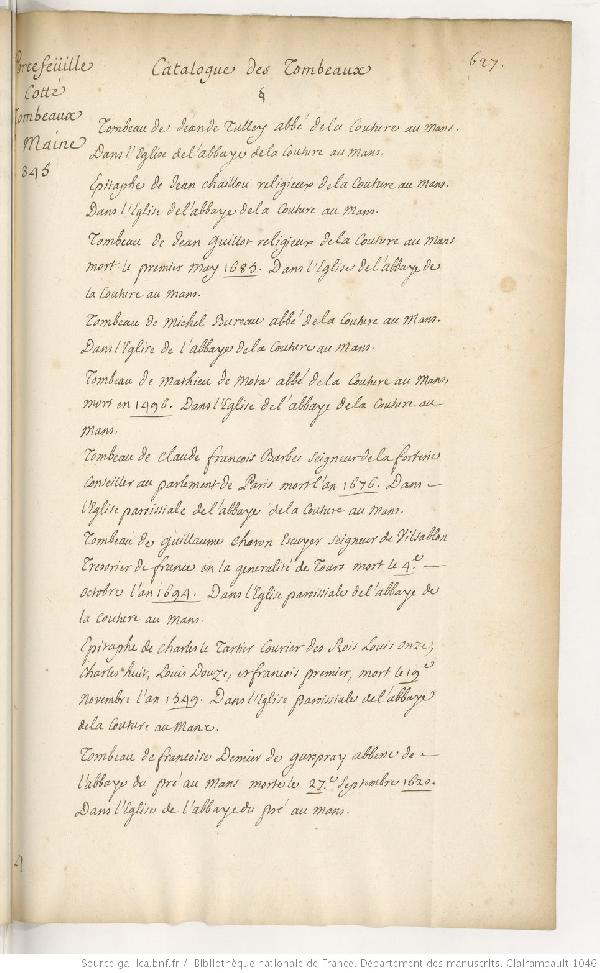 627.
Portefeüille
Cotte
Tombeaux
Maine
345
Catalogue des Tombeaux
§
Tombeau de Jean de Tulley abbé de la Couture au Mans.
Dans l'Eglise de l'abbaye de la Couture au Mans.
Epitaphe de Jean chaillou religieux de la Couture au Mans.
Dans l'Eglise de l'abbaye de la Couture au Mans.
Tombeau de Jean Guillot religieux de la Couture au Mans
mort le premier may 1683. Dans l'Eglise de l'abbaye de
la Couture au Mans.
Tombeau de Michel Bureau abbé de la Couture au Mans.
Dans l'Eglise de l'abbaye de la Couture au Mans.
Tombeau de Mathieu de Mota abbé de la Couture au Mans,
mort en 1496. Dans l'Eglise de l'abbaye de la Couture au
Mans.
Tombeau de Claude francois Barbes seigneur de la forterie
Conseiller au parlement de Paris mort l'an 1676. Dans
l'Eglise paroissiale de l'abbaye de la Couture au Mans.
Tombeau de guillaume Escuyer seigneur de
Tresorier de france en la generalité de Tours mort le 4.e
octobre l'an 1694. Dans l'Eglise paroissiale de l'abbaye de
la Couture au Mans.
Epitaphe de Charles le Tartier Courier des Rois Louis onze,
Charles huit, Louis Douze, et francois premier, mort le 19e
Novembre l'an 1549. Dans l'Eglise paroissiale de l'abbaye
de la Couture au Mans.
Tombeau de francoise de abbesse de
l'abbaye du pré au Mans morte le 27.e Septembre 1620.
Dans l'Eglise de l'abbaye du pré au Mans.
Source gallica.bnf.fr / Bibliothèque nationale de France. Département des manuscrits. Clairambault 1046